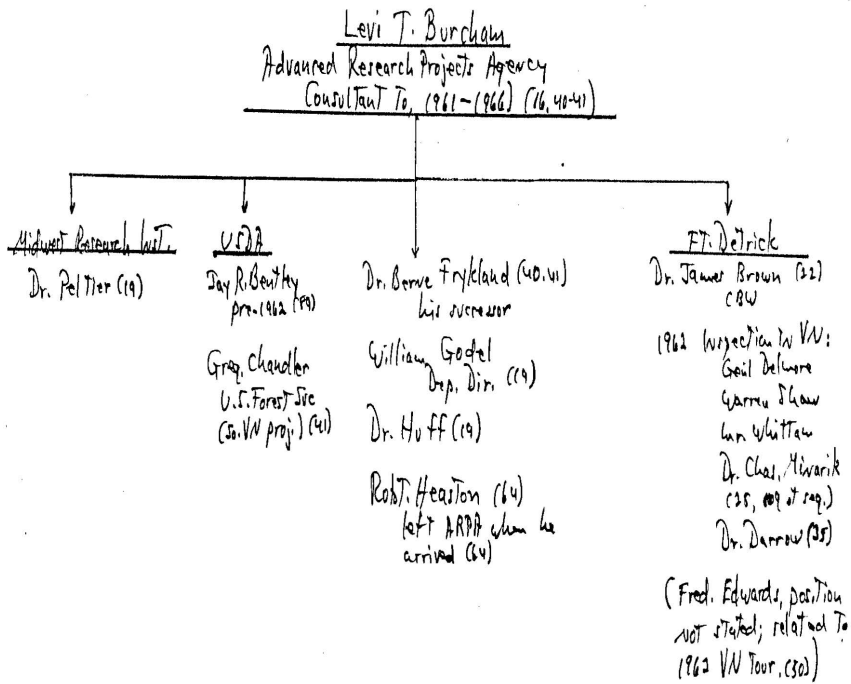 Levi T. Burcham
Advanced Research Projects Agency
Consultant To, 1961-1966) (16, 40-41)
Midwest Research Inst.
Dr. Peltier (19)
USDA
Jay R. Bentley
pre-1962 (89)
Greg. Chandler
U.S. Forest Svc
(So. VN proj.) (41)
Dr. Berve Frykland (40, 41)
his successor
William Godel
Dep. Dir. (19)
Dr. Huff (19)
Robt. Heaston (64)
left ARPA when he
arrived (64)
Ft. Detrick
Dr. James Brown (22)
CBW
1962 Inspection in VN:
Delmore
Warren Shaw
Whittam
Dr. Chas. Minarik
(25, et seq.)
Dr. Darrow (25)
(Fred. Edwards, position
not stated; related to
1962 VN Tour. (50))